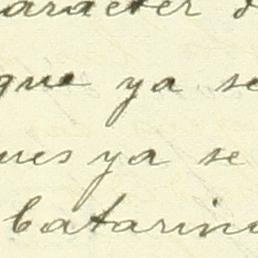 aracter d
que ya se
ues ya se
Catarin